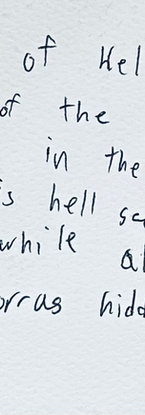 of Hel
of the
in the
is hell sc
while al
orras hidd